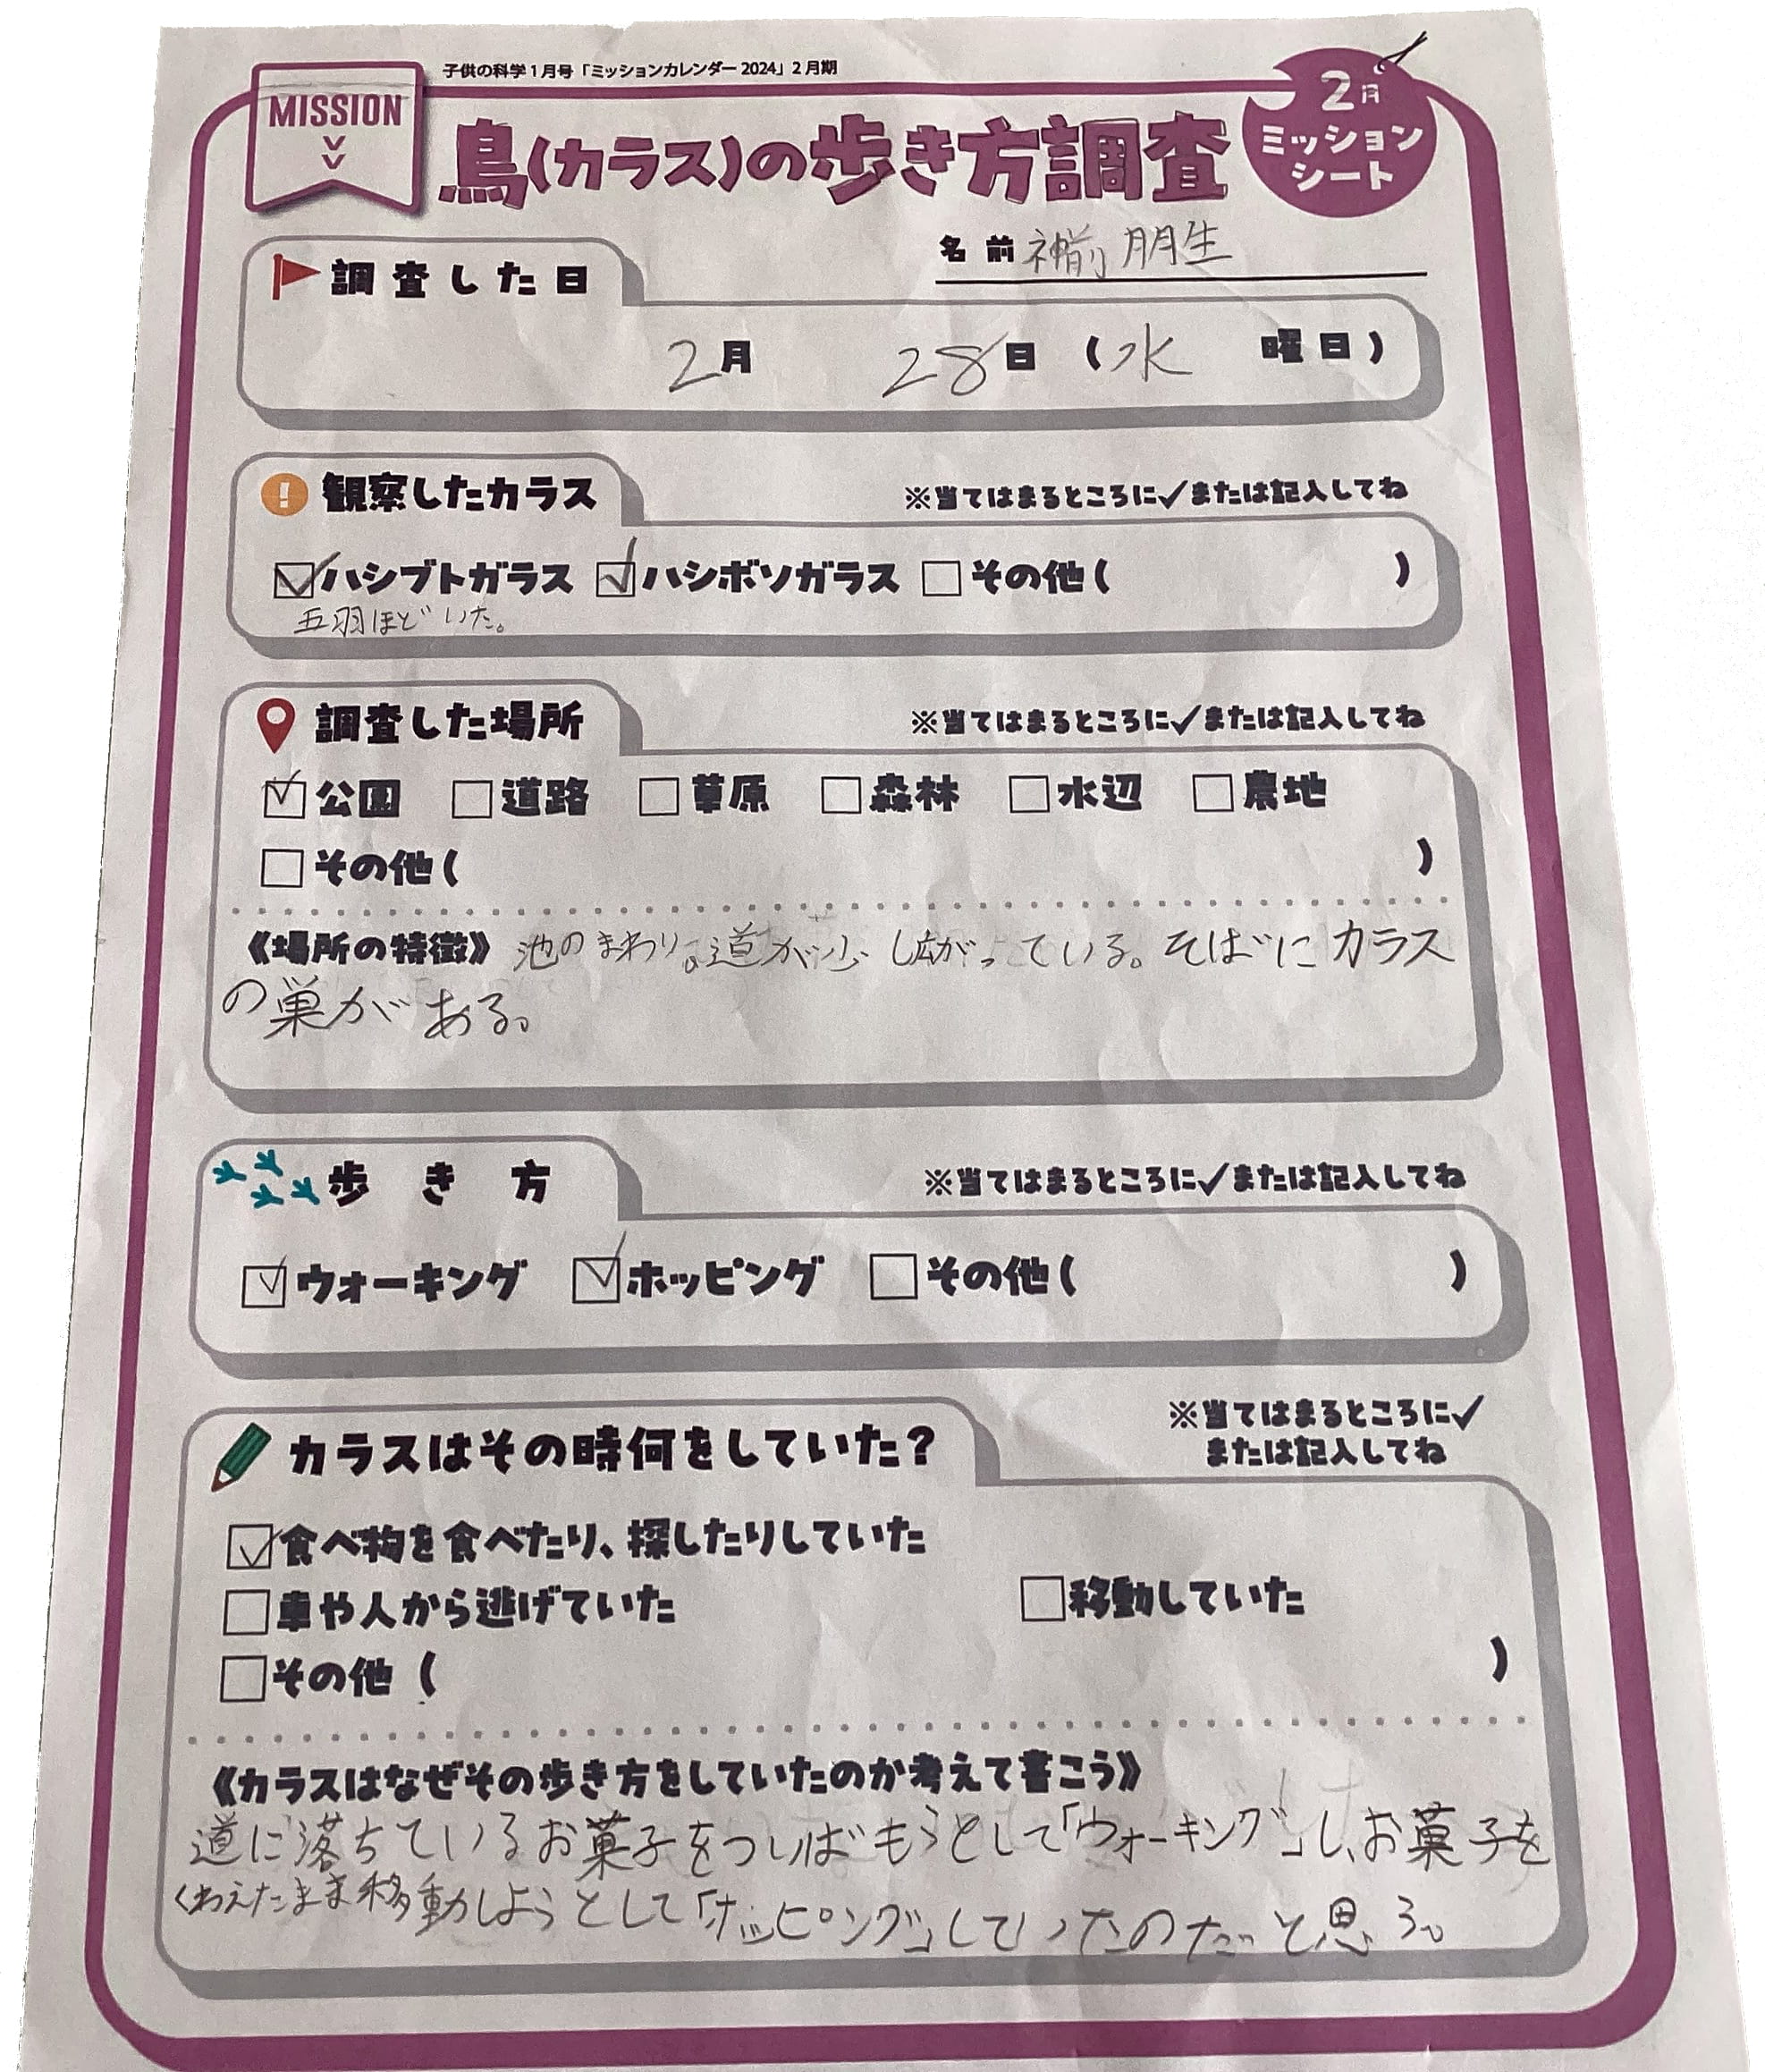 子供の科学1月号「ミッションカレンダー2024」2月期
MISSION
鳥(カラス)の歩き方調査
2月
ミッション
シート
名前 神前 朋生
調査した日
2月 28日 (水 曜日)
観察したカラス
※当てはまるところに✓または記入してね
☑ハシブトガラス ☑ハシボソガラス □その他( )
五羽ほどいた。
調査した場所
※当てはまるところに✓または記入してね
☑公園 □道路 □草原 □森林 □水辺 □農地
□その他( )
《場所の特徴》 池のまわり。道が少し広がっている。そばにカラス
の巣がある。
歩き方
※当てはまるところに✓または記入してね
☑ウォーキング ☑ホッピング □その他( )
カラスはその時何をしていた?
※当てはまるところに✓
または記入してね
☑食べ物を食べたり、探したりしていた
□車や人から逃げていた □移動していた
□その他 ( )
《カラスはなぜその歩き方をしていたのか考えて書こう》
道に落ちているお菓子をついばもうとして「ウォーキング」し、お菓子を
くわえたまま移動しようとして「ホッピング」していたのだと思う。